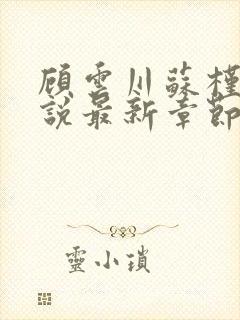 顧雲川蘇槿
說最新章節
靈小瑣